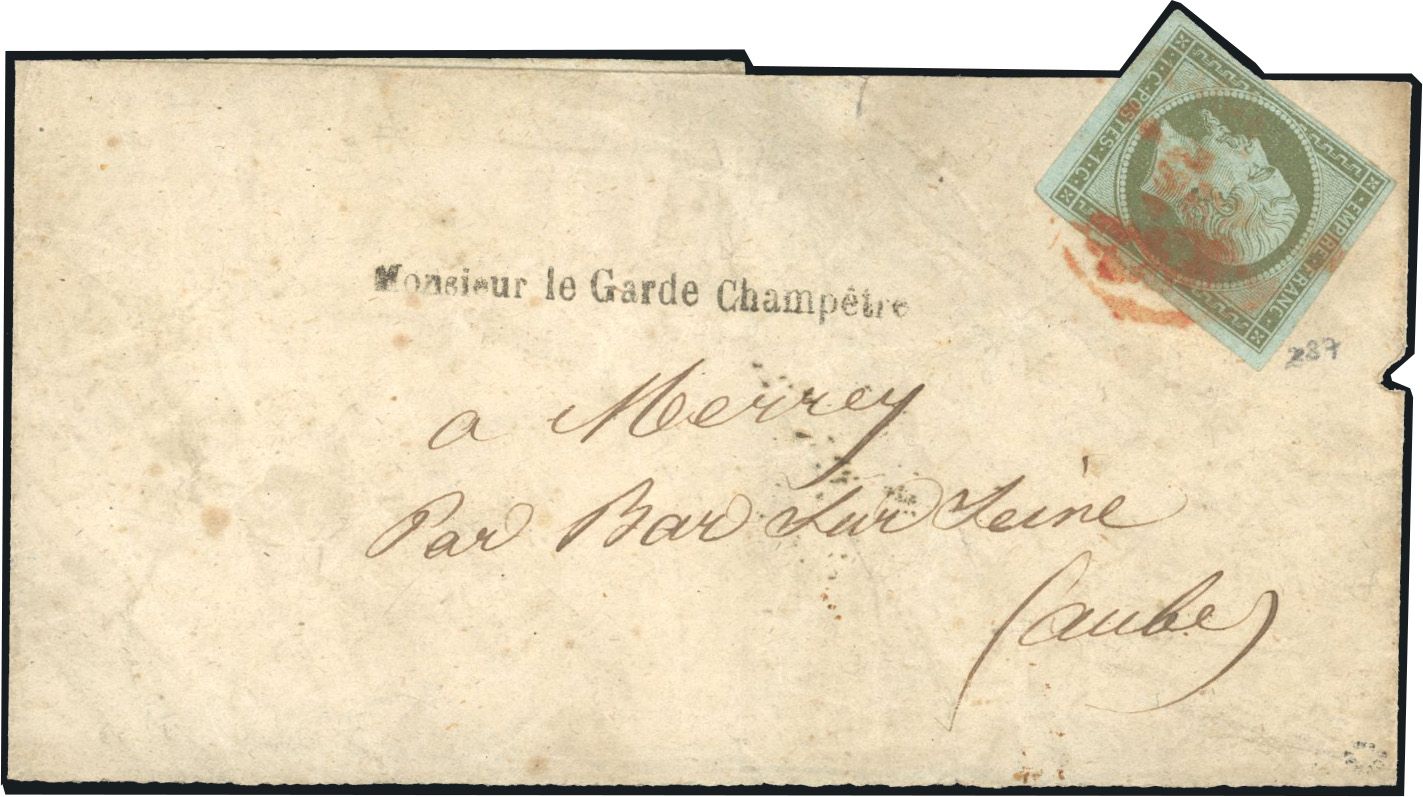 Monsieur le Garde Champêtre
a Merrey
Par Bar Sur Seine
(aube)
EMPIRE·FRANC·
·1·C·POSTES·1·C·
287